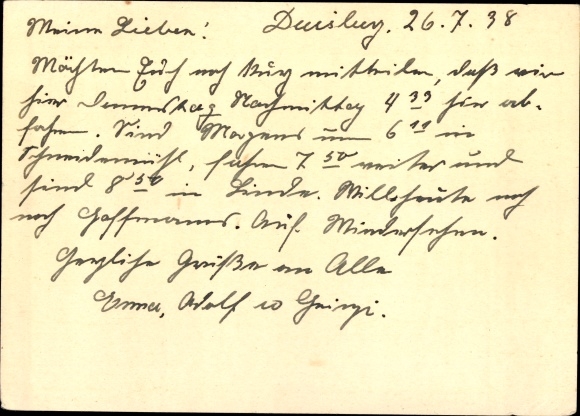 Meine Lieben! Duisburg, 26.7.38
Möchten Euch noch kurz mitteilen, daß wir
hier Donnerstag Nachmittag 4 39 hier ab-
fahren. Sind Morgens um 6 11 in
Schneidemühl, fahren 7 50 weiter und
sind 8 50 in Linde. Will heute noch
nach Hoffmanns. Auf Wiedersehen.
Herzliche Grüße an Alle
Erna, Adolf u